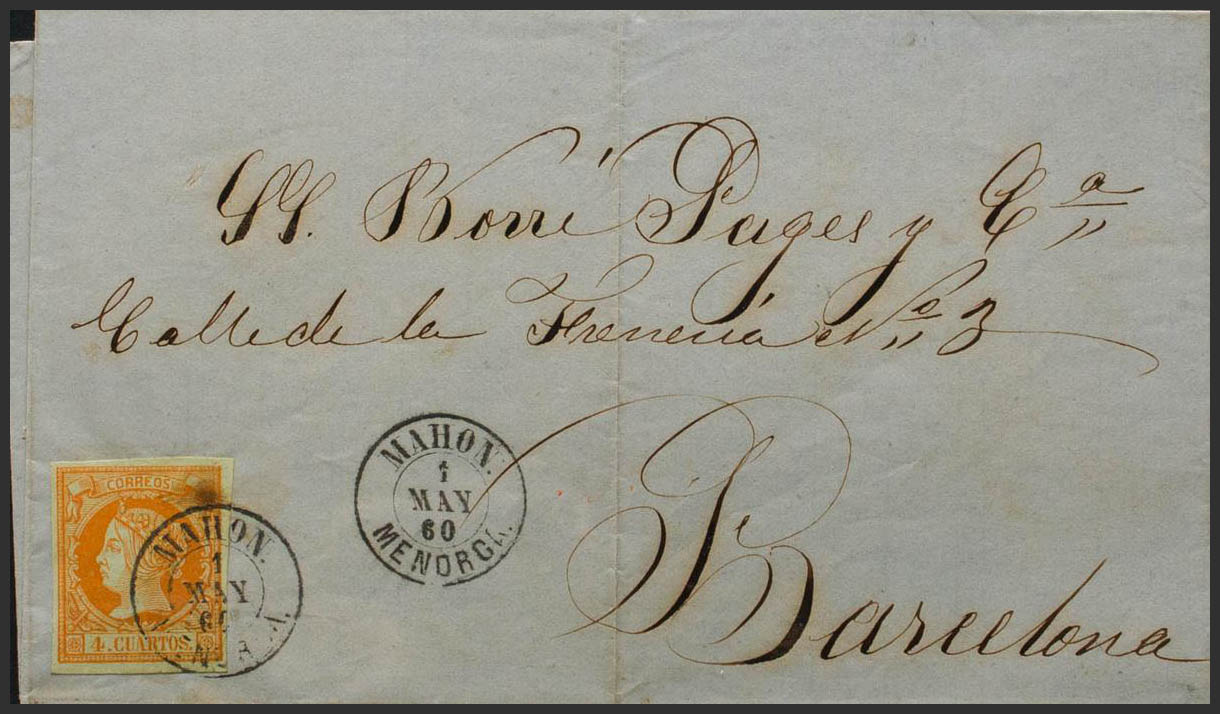 SS. Borré Pages y Cª
Calle de la Freneria Nº 3
Barcelona
MAHON.
1
MAY
60
MENORCA.
CORREOS
4 CUARTOS.
MAHON.
1
MAY
60